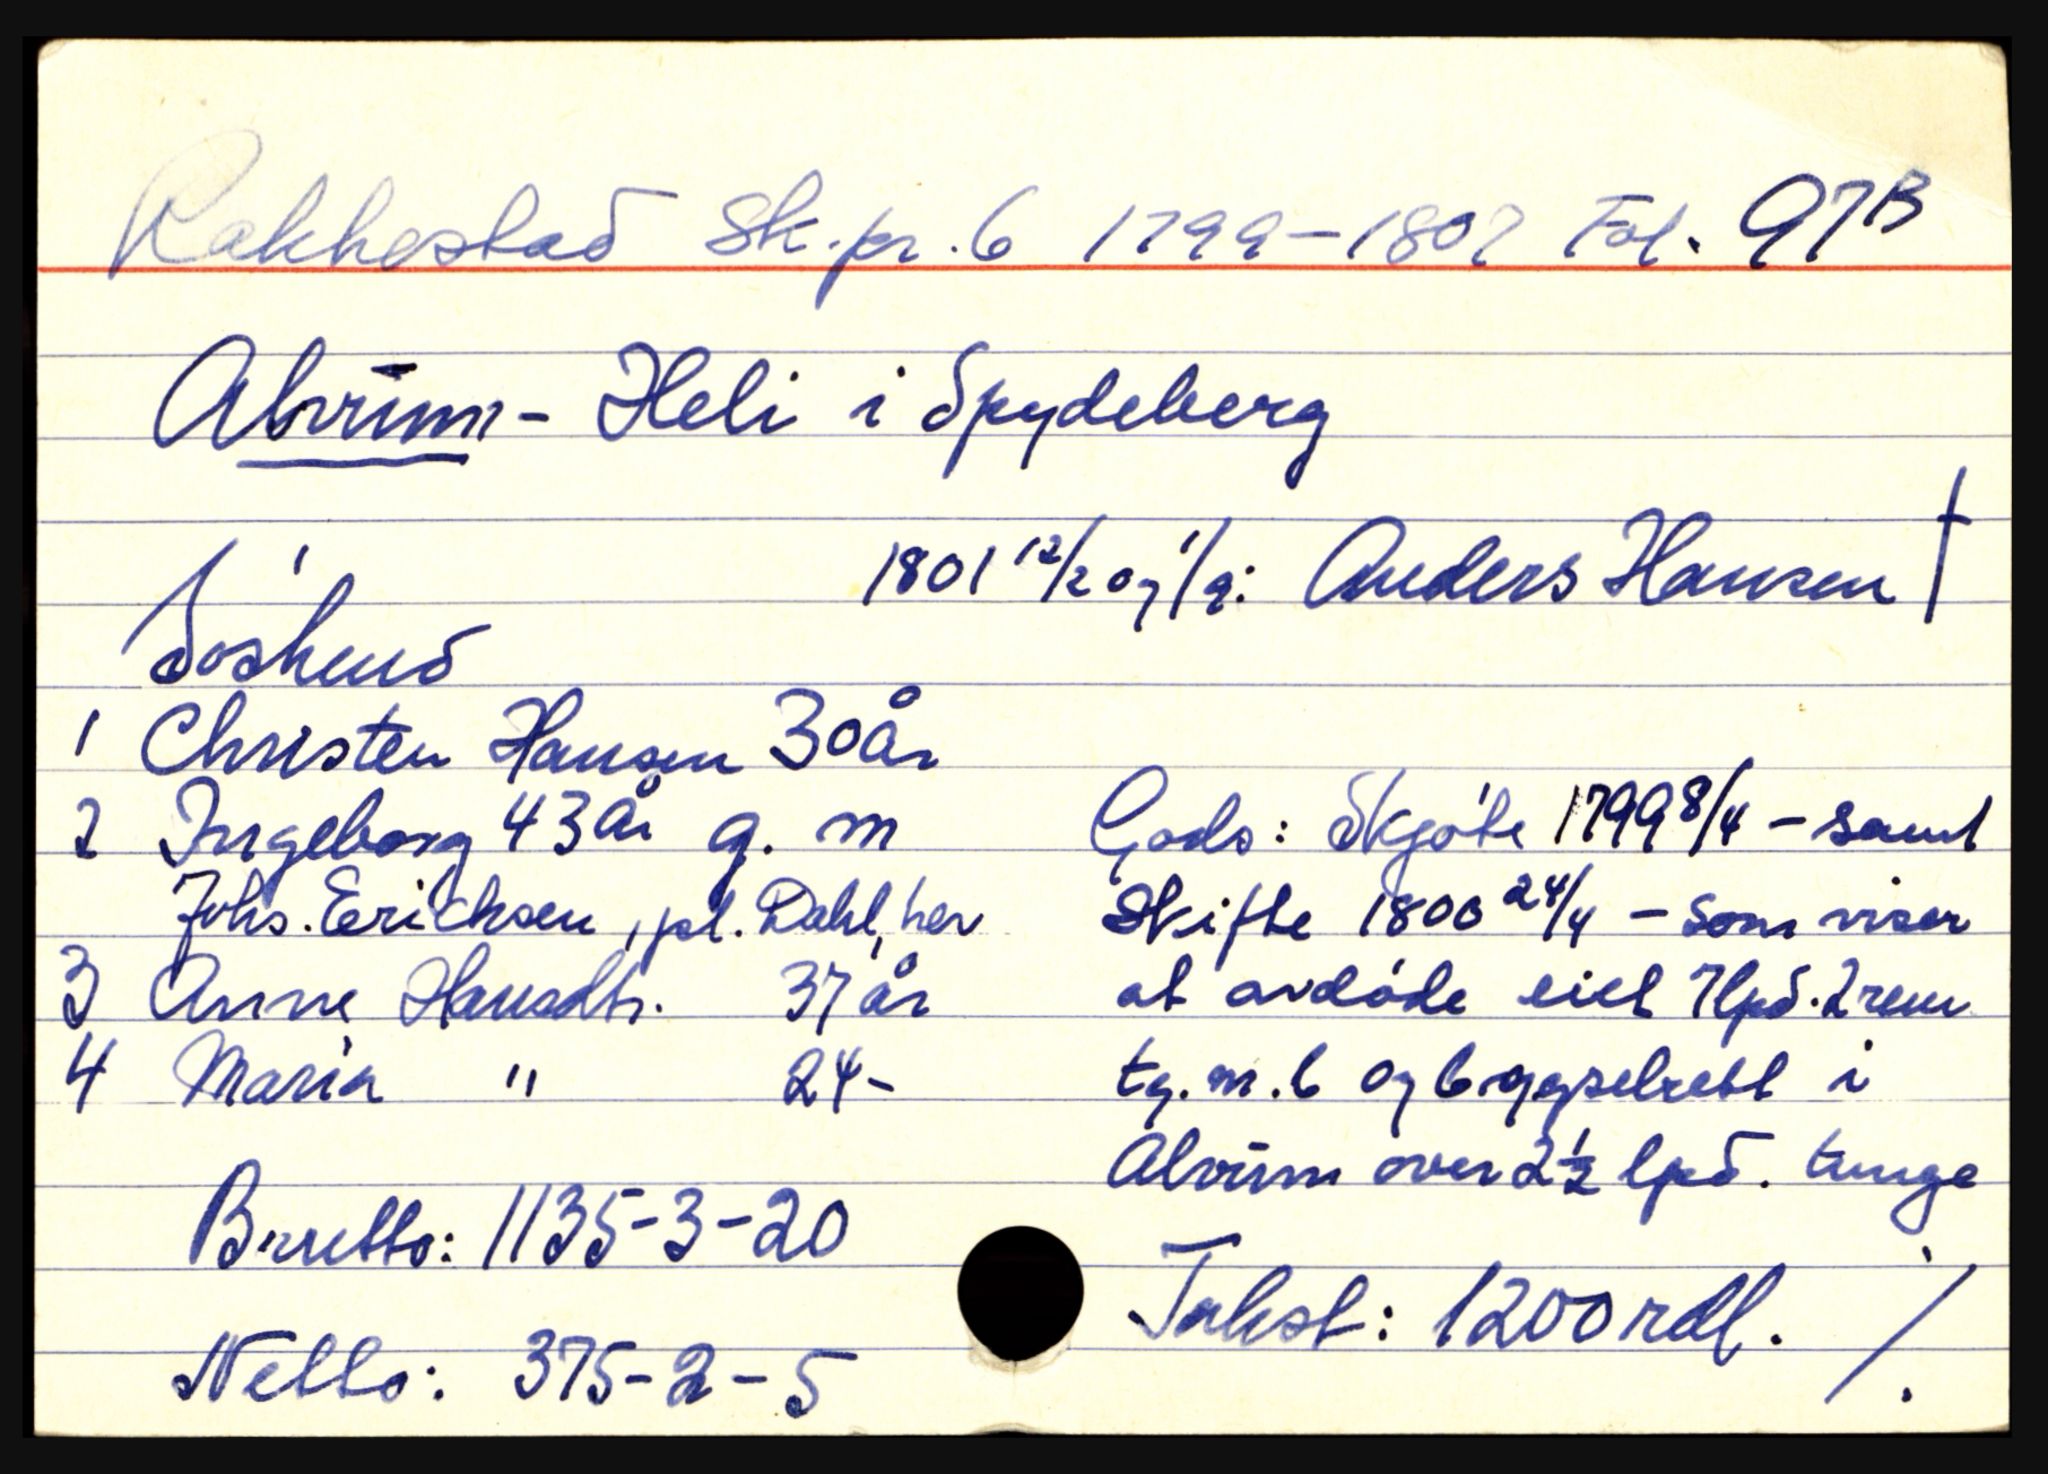 Rakkestad Sk.pr. 6 1799-1807 Fol. 97B
Alvim - Heli i Spydeberg
1801 12/2 og 1/9: Anders Hansen †
Søskend
1 Christen Hansen 30 år
2 Ingeborg 43 år g. m
Johs. Erichsen, pl. Dahl, her
3 Anne Hansdtr. 37 år
4 Maria " 24-
Brutto: 1135-3-20
Netto: 375-2-5
Gods: Skjøte 1799 8/4 - samt
Skifte 1800 24/4 - som viser
at avdøde eiet 7 lpd. 2 rem
tg. m. b og bygselrett i
Alvim over 2½ lpd. tunge
Takst: 1200 rdl. ./.